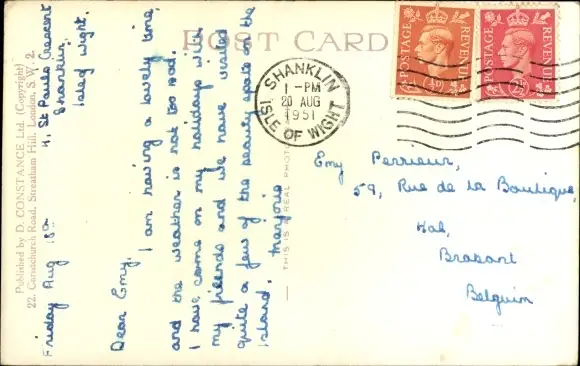 POST CARD
Published by D. CONSTANCE Ltd. (Copyright)
22, Carstchurch Road, Streatham Hill, London, S.W. 2.
THIS IS A REAL PHOTO
4, St Pauls Crescent
Shanklin,
Isle of Wight.
Friday Aug
Dear Emy,
I am having a lovely time,
and the weather is not too bad.
I have come on my holidays with
my friends and we have visited
quite a few of the beauty spots on the
Island. Marjorie
SHANKLIN
1 - PM
20 AUG
1951
ISLE OF WIGHT
POSTAGE REVENUE
POSTAGE REVENUE
Emy Perrieur,
59, Rue de la Boutique,
Hal,
Brabant
Belguim